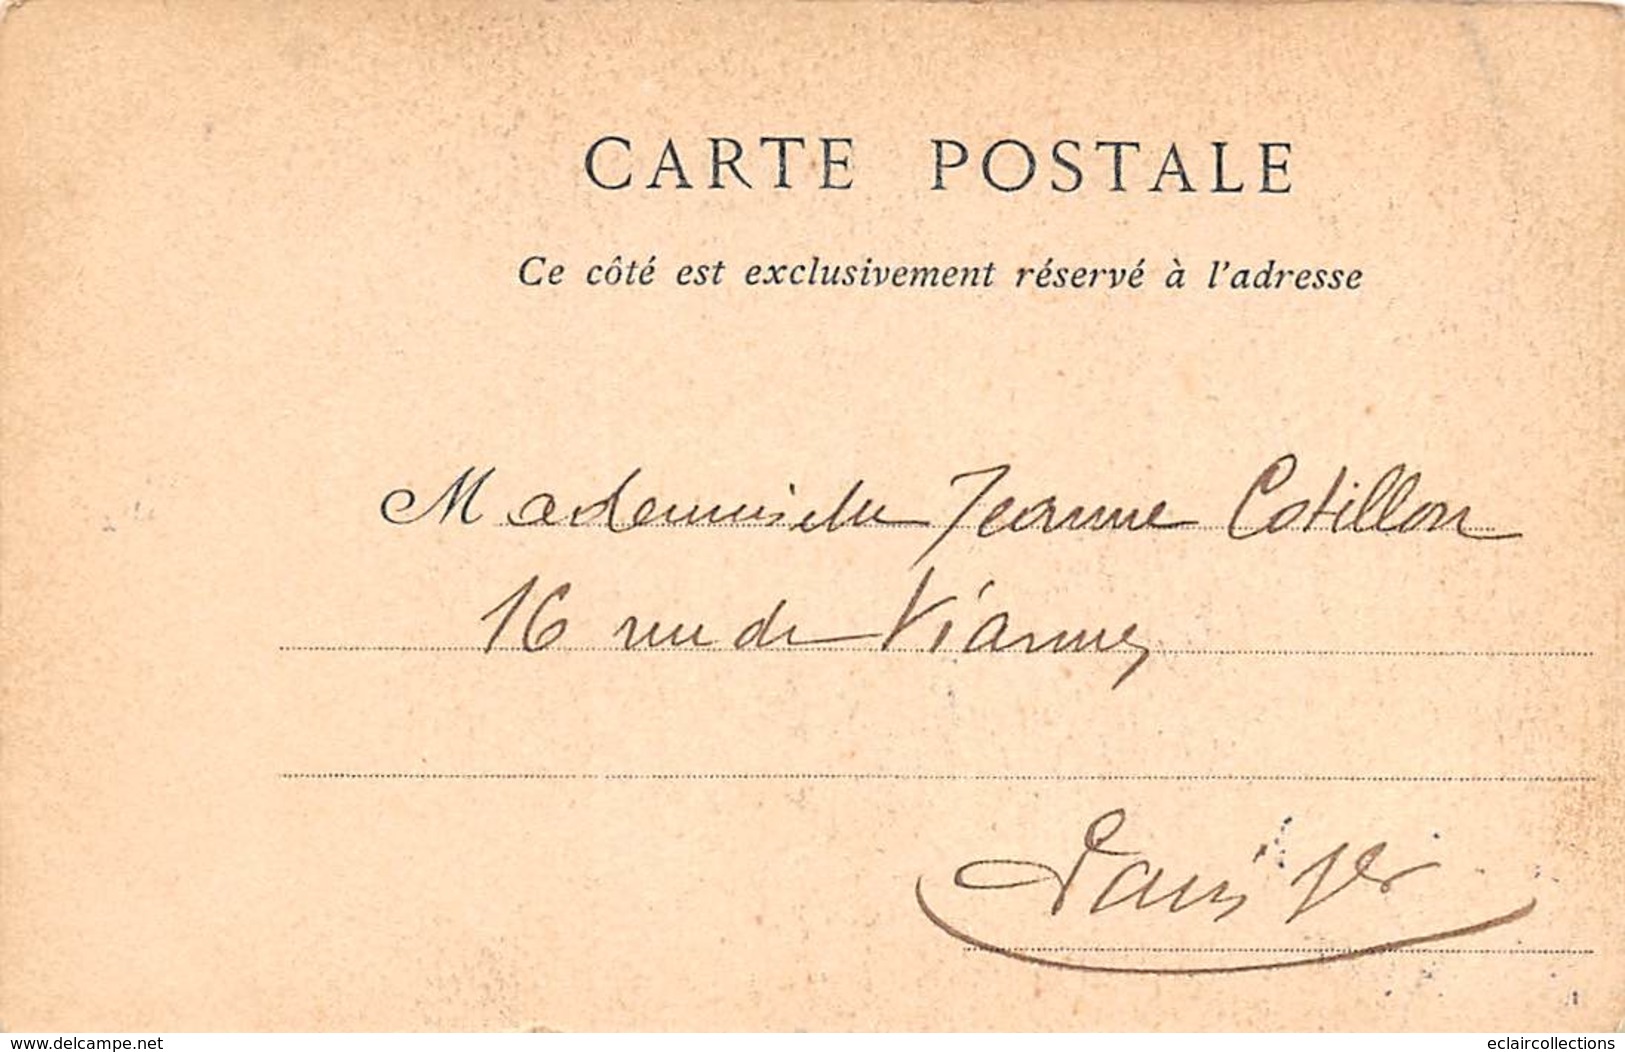 CARTE POSTALE
Ce côté est exclusivement réservé à l'adresse
Mademoiselle Jeanne Cotillon
16 rue de Viarmes
Paris 1er
www.delcampe.net
eclaircollections